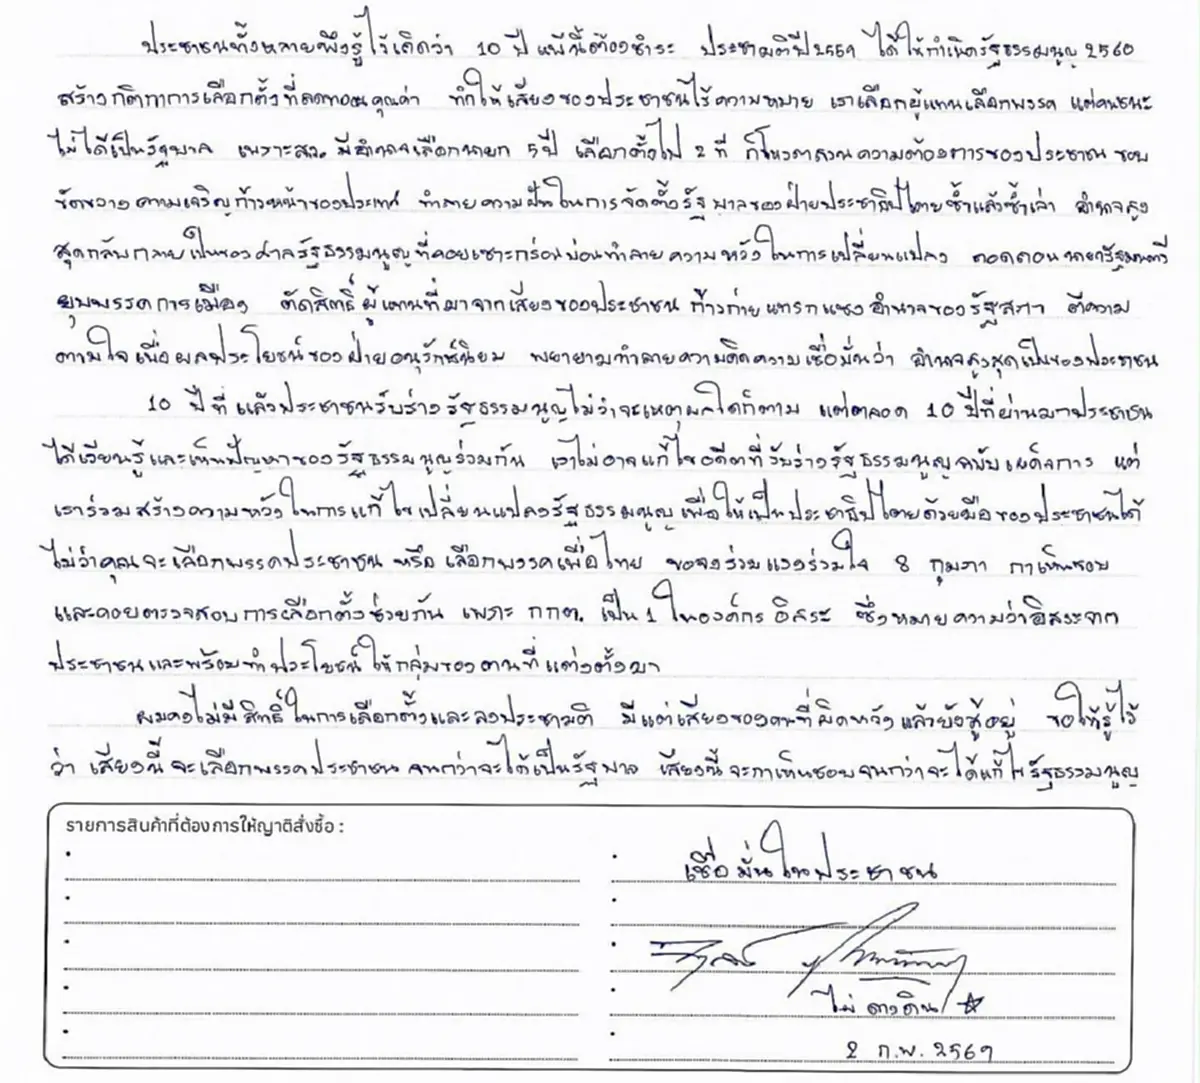 ประชาชนทั้งหลายพึงรู้ไว้เถิดว่า 10 ปี หนี้นี้ต้องชำระ ประชามติปี 2559 ได้ให้กำเนิดรัฐธรรมนูญ 2560
สร้างกติกาการเลือกตั้งที่ลดทอนคุณค่า ทำให้เสียงของประชาชนไร้ความหมาย เราเลือกผู้แทนเลือกพรรค แต่คนชนะ
ไม่ได้เป็นรัฐบาล เพราะสว. มีอำนาจเลือกนายก 5 ปี เลือกตั้งไป 2 ที ก็โหวตสวนความต้องการของประชาชน ชอบ
ขัดขวางความเจริญก้าวหน้าของประเทศ ทำลายความฝันในการจัดตั้งรัฐบาลของฝ่ายประชาธิปไตยซ้ำแล้วซ้ำเล่า อำนาจสูง
สุดกลับกลายเป็นของศาลรัฐธรรมนูญที่คอยเซาะกร่อนบ่อนทำลายความหวังในการเปลี่ยนแปลง ถอดถอนนายกรัฐมนตรี
ยุบพรรคการเมือง ตัดสิทธิ์ผู้แทนที่มาจากเสียงของประชาชน ก้าวก่ายแทรกแซงอำนาจของรัฐสภา ตีความ
ตามใจเพื่อผลประโยชน์ของฝ่ายอนุรักษ์นิยม พยายามทำลายความคิดความเชื่อมั่นว่า อำนาจสูงสุดเป็นของประชาชน
10 ปีที่แล้วประชาชนรับร่างรัฐธรรมนูญไม่ว่าจะเหตุผลใดก็ตาม แต่ตลอด 10 ปีที่ผ่านมาประชาชน
ได้เรียนรู้และเห็นปัญหาของรัฐธรรมนูญร่วมกัน เราไม่อาจแก้ไขอดีตที่รับร่างรัฐธรรมนูญฉบับเผด็จการ แต่
เราร่วมสร้างความหวังในการแก้ไขเปลี่ยนแปลงรัฐธรรมนูญเพื่อให้เป็นประชาธิปไตยด้วยมือของประชาชนได้
ไม่ว่าคุณจะเลือกพรรคประชาชน หรือ เลือกพรรคเพื่อไทย ขอจงร่วมแรงร่วมใจ 8 กุมภา กาเห็นชอบ
และคอยตรวจสอบการเลือกตั้งช่วยกัน เพราะ กกต. เป็น 1 ในองค์กรอิสระ ซึ่งหมายความว่าอิสระจาก
ประชาชนและพร้อมทำประโยชน์ให้กลุ่มของคนที่แต่งตั้งมา
ผมคงไม่มีสิทธิ์ในการเลือกตั้งและลงประชามติ มีแต่เสียงของคนที่ผิดหวังแล้วยังสู้อยู่ ขอให้รู้ไว้
ว่า เสียงนี้จะเลือกพรรคประชาชน จนกว่าจะได้เป็นรัฐบาล เสียงนี้จะกาเห็นชอบจนกว่าจะได้แก้ไขรัฐธรรมนูญ
รายการสินค้าที่ต้องการให้ญาติสั่งซื้อ :
เชื่อมั่นในประชาชน
ไผ่ ดาวดิน
2 ก.พ. 2569